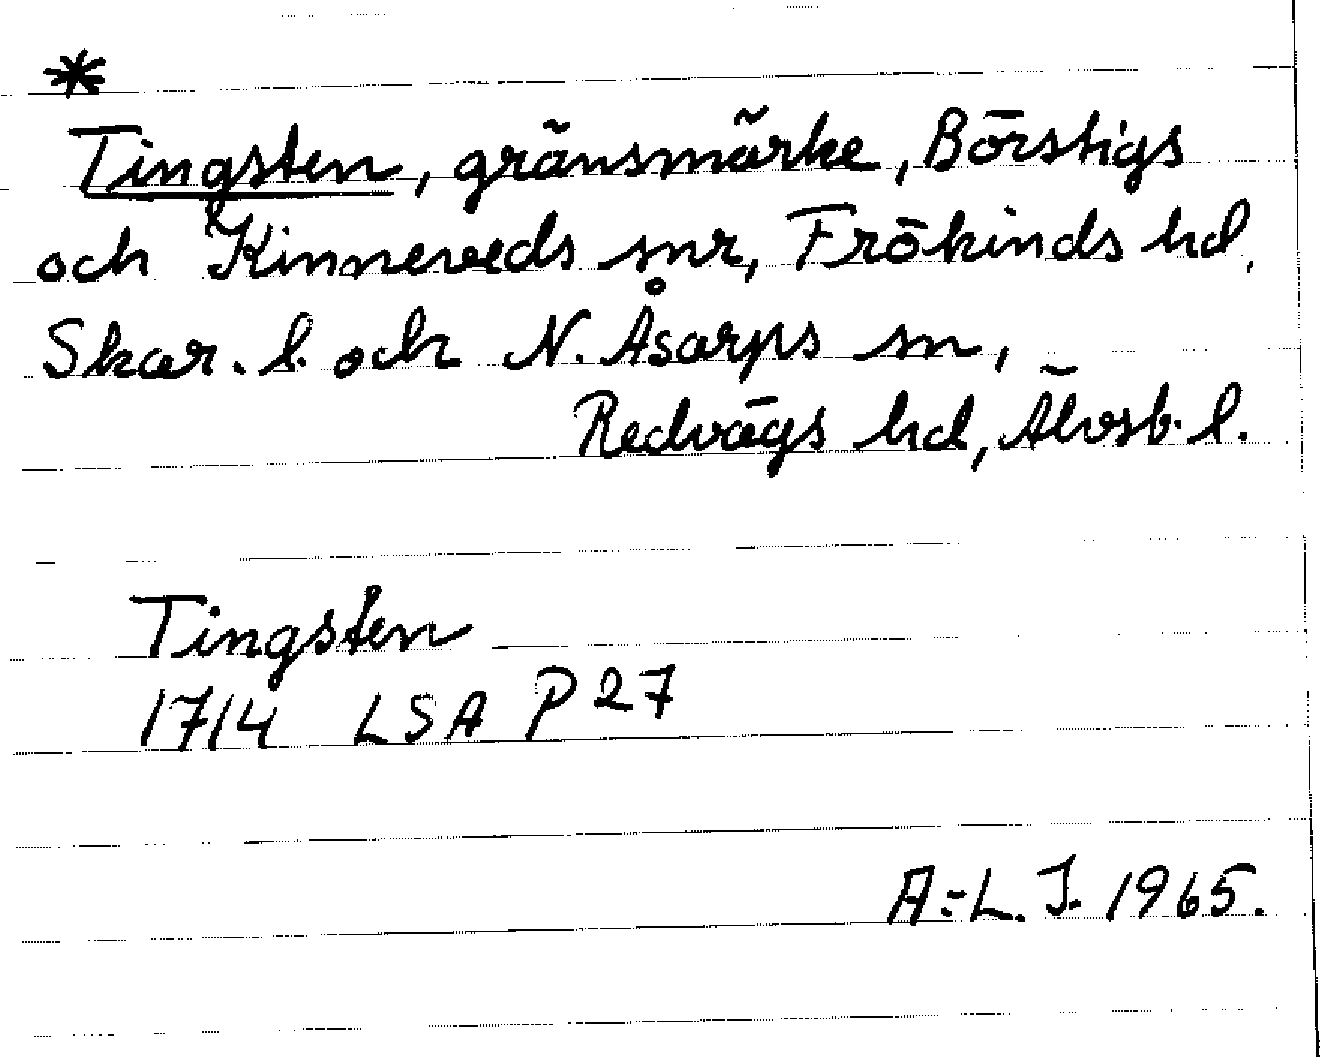 *
Tingsten, gränsmärke, Börstigs
och Kinneveds snr, Frökinds hd,
Skar. l. och N. Åsarps sn,
Redvägs hd, Älvsb. l.
Tingsten
1714 LSA P 27
A-L. J. 1965.